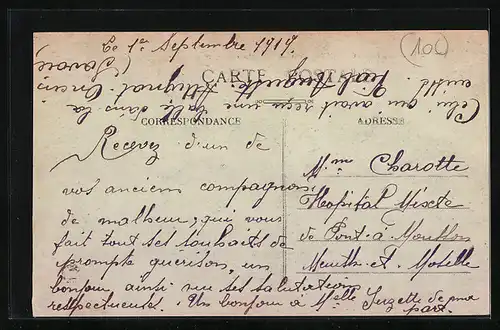 Le 1er Septembre 1919.
(100)
CARTE POSTALE
CORRESPONDANCE
ADRESSE
Recevez d'un de
vos anciens compagnons
de malheur, qui vous
fait tout ses souhaits de
prompte guerison, un
bonjour ainsi que ses salutations
respectueuses. Un bonjour à Melle Suzette de ma
part.
Mme Charotte
Hopital Mixte
de Pont-à-Mousson
Meurthe-et-Moselle
Celui qui avait reçu une balle dans la
cuisse. Vial Auguste
(Savoie)